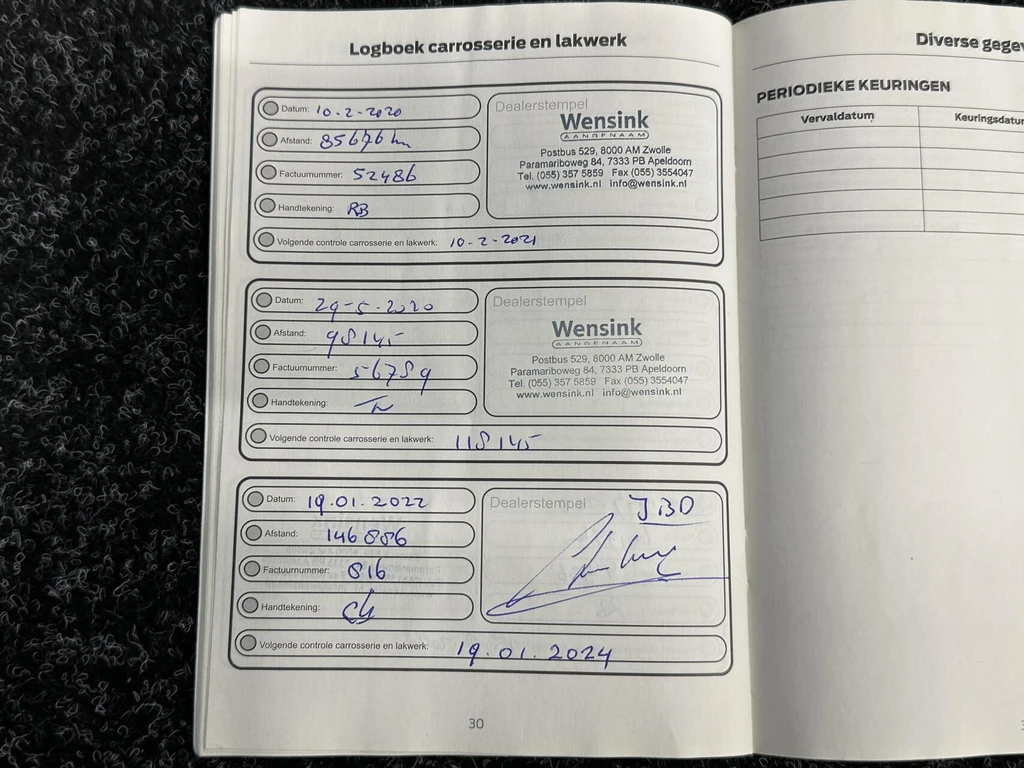 Logboek carrosserie en lakwerk
Datum: 10-2-2020
Afstand: 85676 km
Factuurnummer: 52486
Handtekening: RB
Volgende controle carrosserie en lakwerk: 10-2-2021
Dealerstempel
Wensink
AANGENAAM
Postbus 529, 8000 AM Zwolle
Paramariboweg 84, 7333 PB Apeldoorn
Tel. (055) 357 5859 Fax (055) 3554047
www.wensink.nl info@wensink.nl
Datum: 29-5-2020
Afstand: 98145
Factuurnummer: 56789
Handtekening:
Volgende controle carrosserie en lakwerk: 118145
Dealerstempel
Wensink
AANGENAAM
Postbus 529, 8000 AM Zwolle
Paramariboweg 84, 7333 PB Apeldoorn
Tel. (055) 357 5859 Fax (055) 3554047
www.wensink.nl info@wensink.nl
Datum: 19.01.2022
Afstand: 146886
Factuurnummer: 816
Handtekening:
Volgende controle carrosserie en lakwerk: 19.01.2024
Dealerstempel
30
Diverse gegev
PERIODIEKE KEURINGEN
Vervaldatum Keuringsdatum